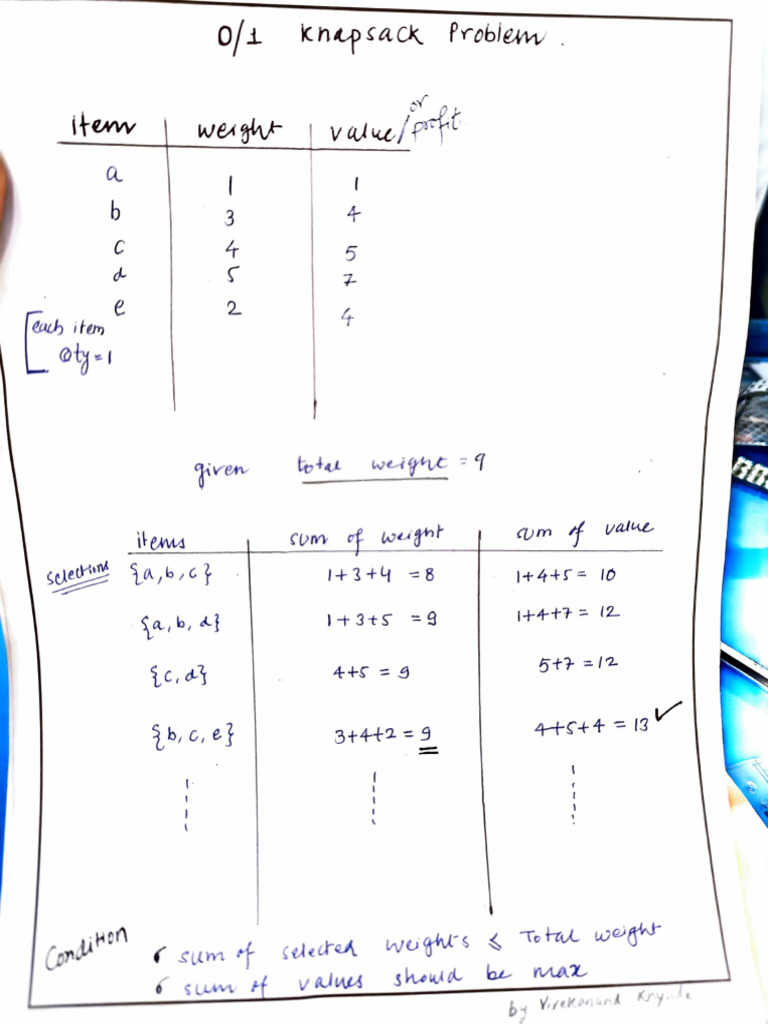 0/1 Knapsack Problem.
item weight value/ or profit
a 1 1
b 3 4
c 4 5
d 5 7
e 2 4
[each item
Qty=1
given total weight = 9
items sum of weight sum of value
selections {a,b,c} 1+3+4 = 8 1+4+5 = 10
{a,b,d} 1+3+5 = 9 1+4+7 = 12
{c,d} 4+5 = 9 5+7 = 12
{b,c,e} 3+4+2 = 9 4+5+4 = 13 ✓
Condition
sum of selected weights ≤ Total weight
sum of values should be max
by Vivekanand